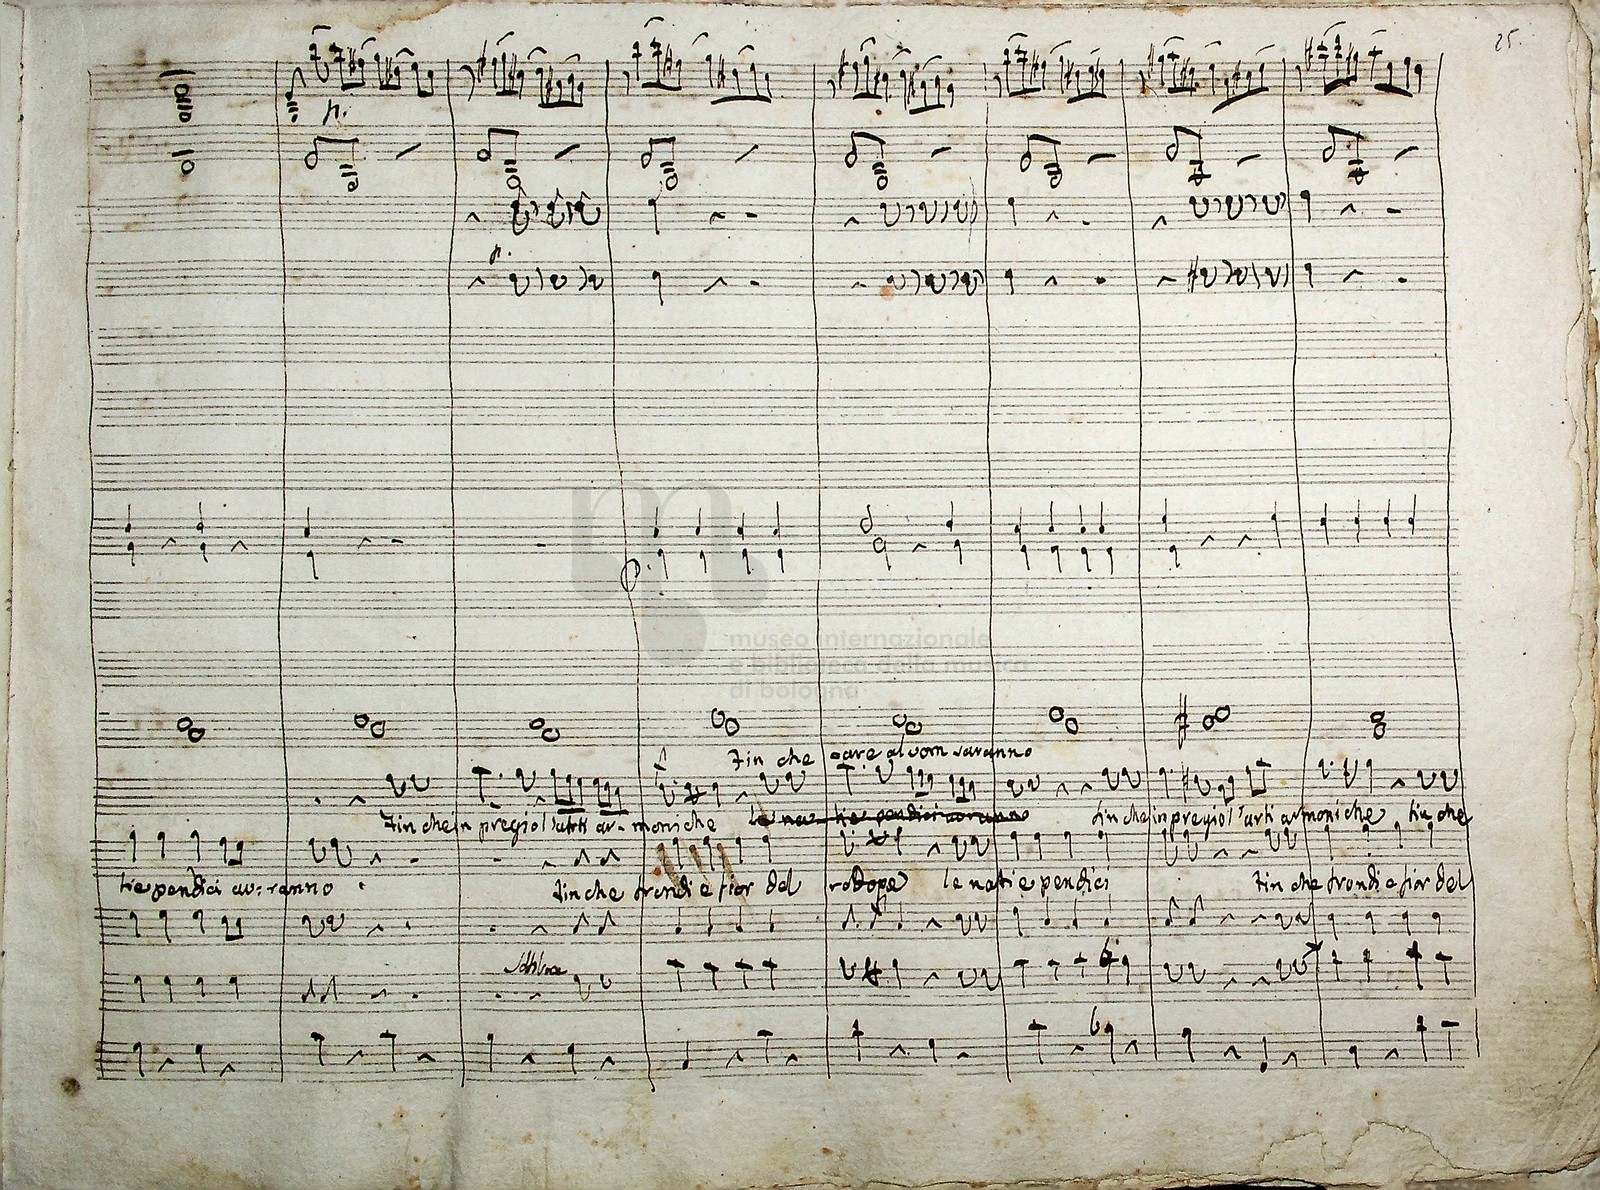 25.
p.
p.
Fin che care al vom saranno
Fin che in pregio l'arti ar-moniche le na-tie pendici avranno fin che in pregio l'arti armoniche fin che
tie pendici av-ranno fin che frondi e fior del rodope le natie pendici fin che frondi e fior del
museo internazionale
e biblioteca della musica
di bologna